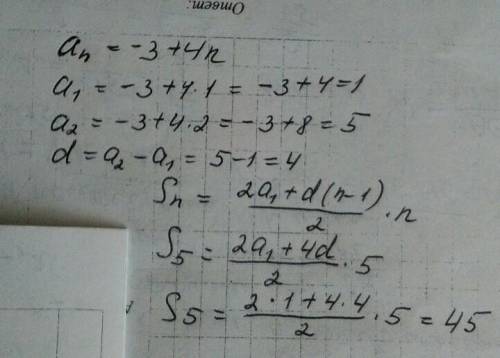 Ответ:
aₙ = -3+4n
a₁ = -3+4·1 = -3+4=1
a₂ = -3+4·2 = -3+8 = 5
d = a₂ - a₁ = 5-1 = 4
Sₙ = (2a₁+d(n-1))/2 · n
S₅ = (2a₁+4d)/2 · 5
S₅ = (2·1+4·4)/2 · 5 = 45